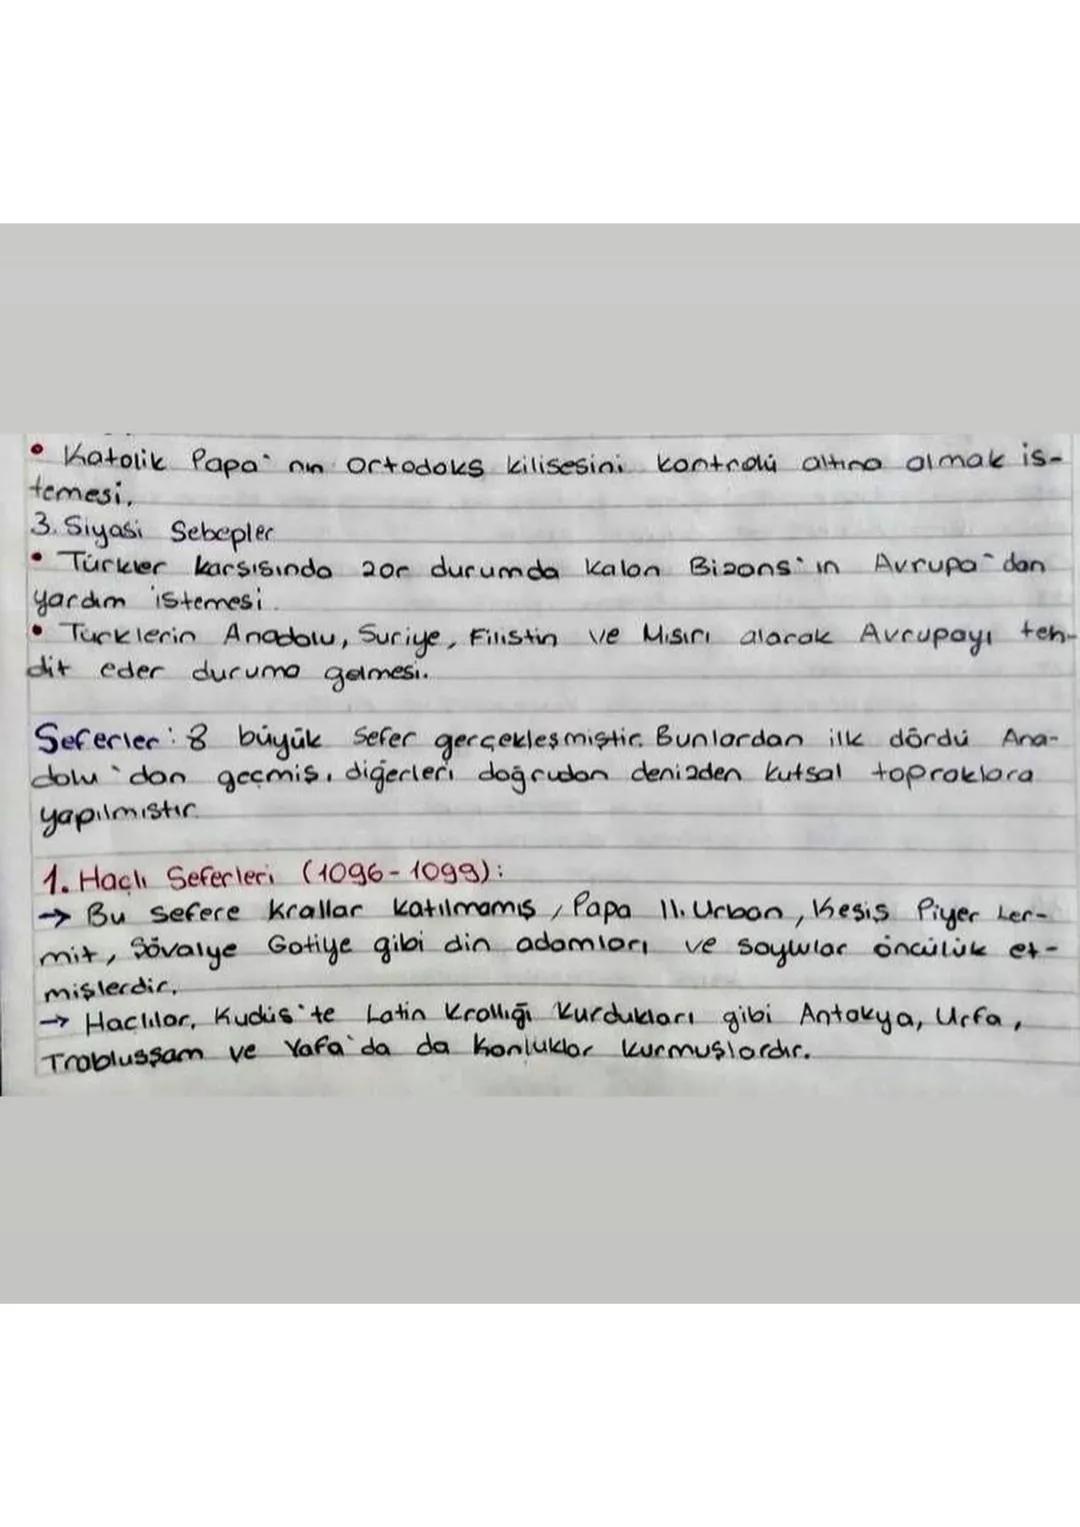 • Katolik Papa'nın Ortodoks kilisesini kontrolü altına almak is-
temesi.
3. Siyasi Sebepler
• Türkler karşısında zor durumda kalan Bizans'ın Avrupa'dan
yardım istemesi.
• Türklerin Anadolu, Suriye, Filistin ve Mısırı alarak Avrupayı teh-
dit eder duruma gelmesi.
Seferler: 8 büyük sefer gerçekleşmiştir. Bunlardan ilk dördü Ana-
dolu'dan geçmiş, diğerleri doğrudan denizden kutsal topraklara
yapılmıştır.
1. Haçlı Seferleri (1096-1099):
→ Bu sefere krallar katılmamış, Papa II. Urban, Keşiş Piyer Ler-
mit, Şövalye Gotiye gibi din adamları ve soylular öncülük et-
mişlerdir.
→ Haçlılar, Kudüs'te Latin Krallığı kurdukları gibi Antakya, Urfa,
Trablusşam ve Yafa'da da kontluklar kurmuşlardır.